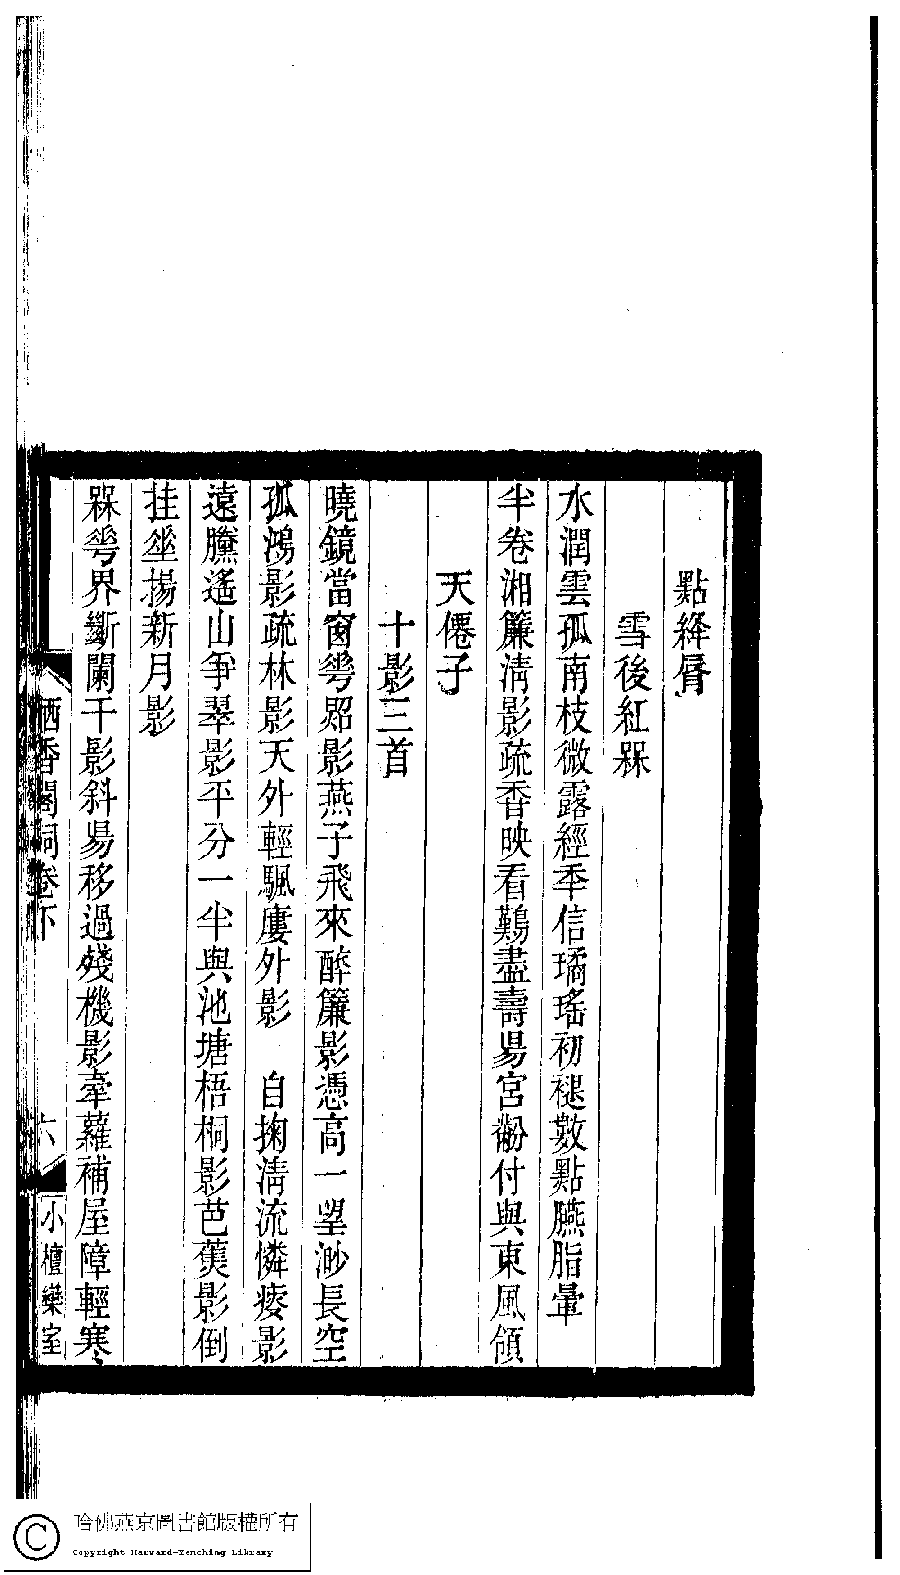 點絳脣
雪後紅槑
水潤雲孤南枝微露經秊信璚瑤初褪數點臙脂暈
半卷湘簾淸影疏香映看難盡壽昜宮黺付與東風領
天僊子
十影三首
曉鏡當窗蕚照影燕子飛來醉簾影憑高一朢渺長空
孤鴻影疏林影天外輕颿廔外影　自掬淸流憐痿影
遠騰遙山爭翠影平分一半與池塘梧桐影芭蕉影倒
挂垂揚新月影
槑蕚界斷闌干影斜昜移過殘機影牽蘿補屋障輕寒
栖香閣詞卷下
六
小檀欒室
哈佛燕京圖書館版權所有
Copyright Harvard-Yenching Library